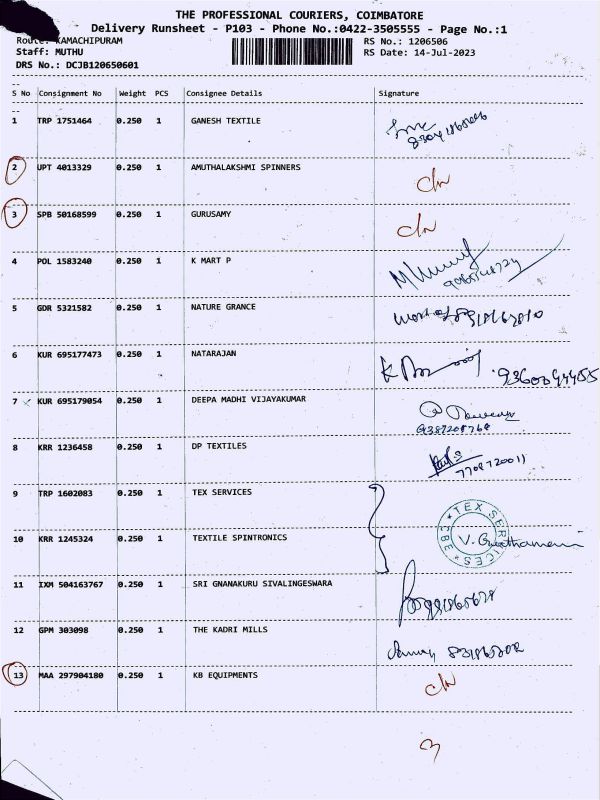 THE PROFESSIONAL COURIERS, COIMBATORE
Delivery Runsheet - P103 - Phone No.:0422-3505555 - Page No.:1
Route: KAMACHIPURAM RS No.: 1206506
Staff: MUTHU RS Date: 14-Jul-2023
DRS No.: DCJB120650601
S No Consignment No Weight PCS Consignee Details Signature
1 TRP 1751464 0.250 1 GANESH TEXTILE
2 UPT 4013329 0.250 1 AMUTHALAKSHMI SPINNERS
3 SPB 50168599 0.250 1 GURUSAMY
4 POL 1583240 0.250 1 K MART P
5 GDR 5321582 0.250 1 NATURE GRANCE
6 KUR 695177473 0.250 1 NATARAJAN
7 KUR 695179054 0.250 1 DEEPA MADHI VIJAYAKUMAR
8 KRR 1236458 0.250 1 DP TEXTILES 7708720011
9 TRP 1602083 0.250 1 TEX SERVICES
* TEX SERVICES * CBE
10 KRR 1245324 0.250 1 TEXTILE SPINTRONICS
11 IXM 504163767 0.250 1 SRI GNANAKURU SIVALINGESWARA
12 GPM 303098 0.250 1 THE KADRI MILLS
13 MAA 297904180 0.250 1 KB EQUIPMENTS
3